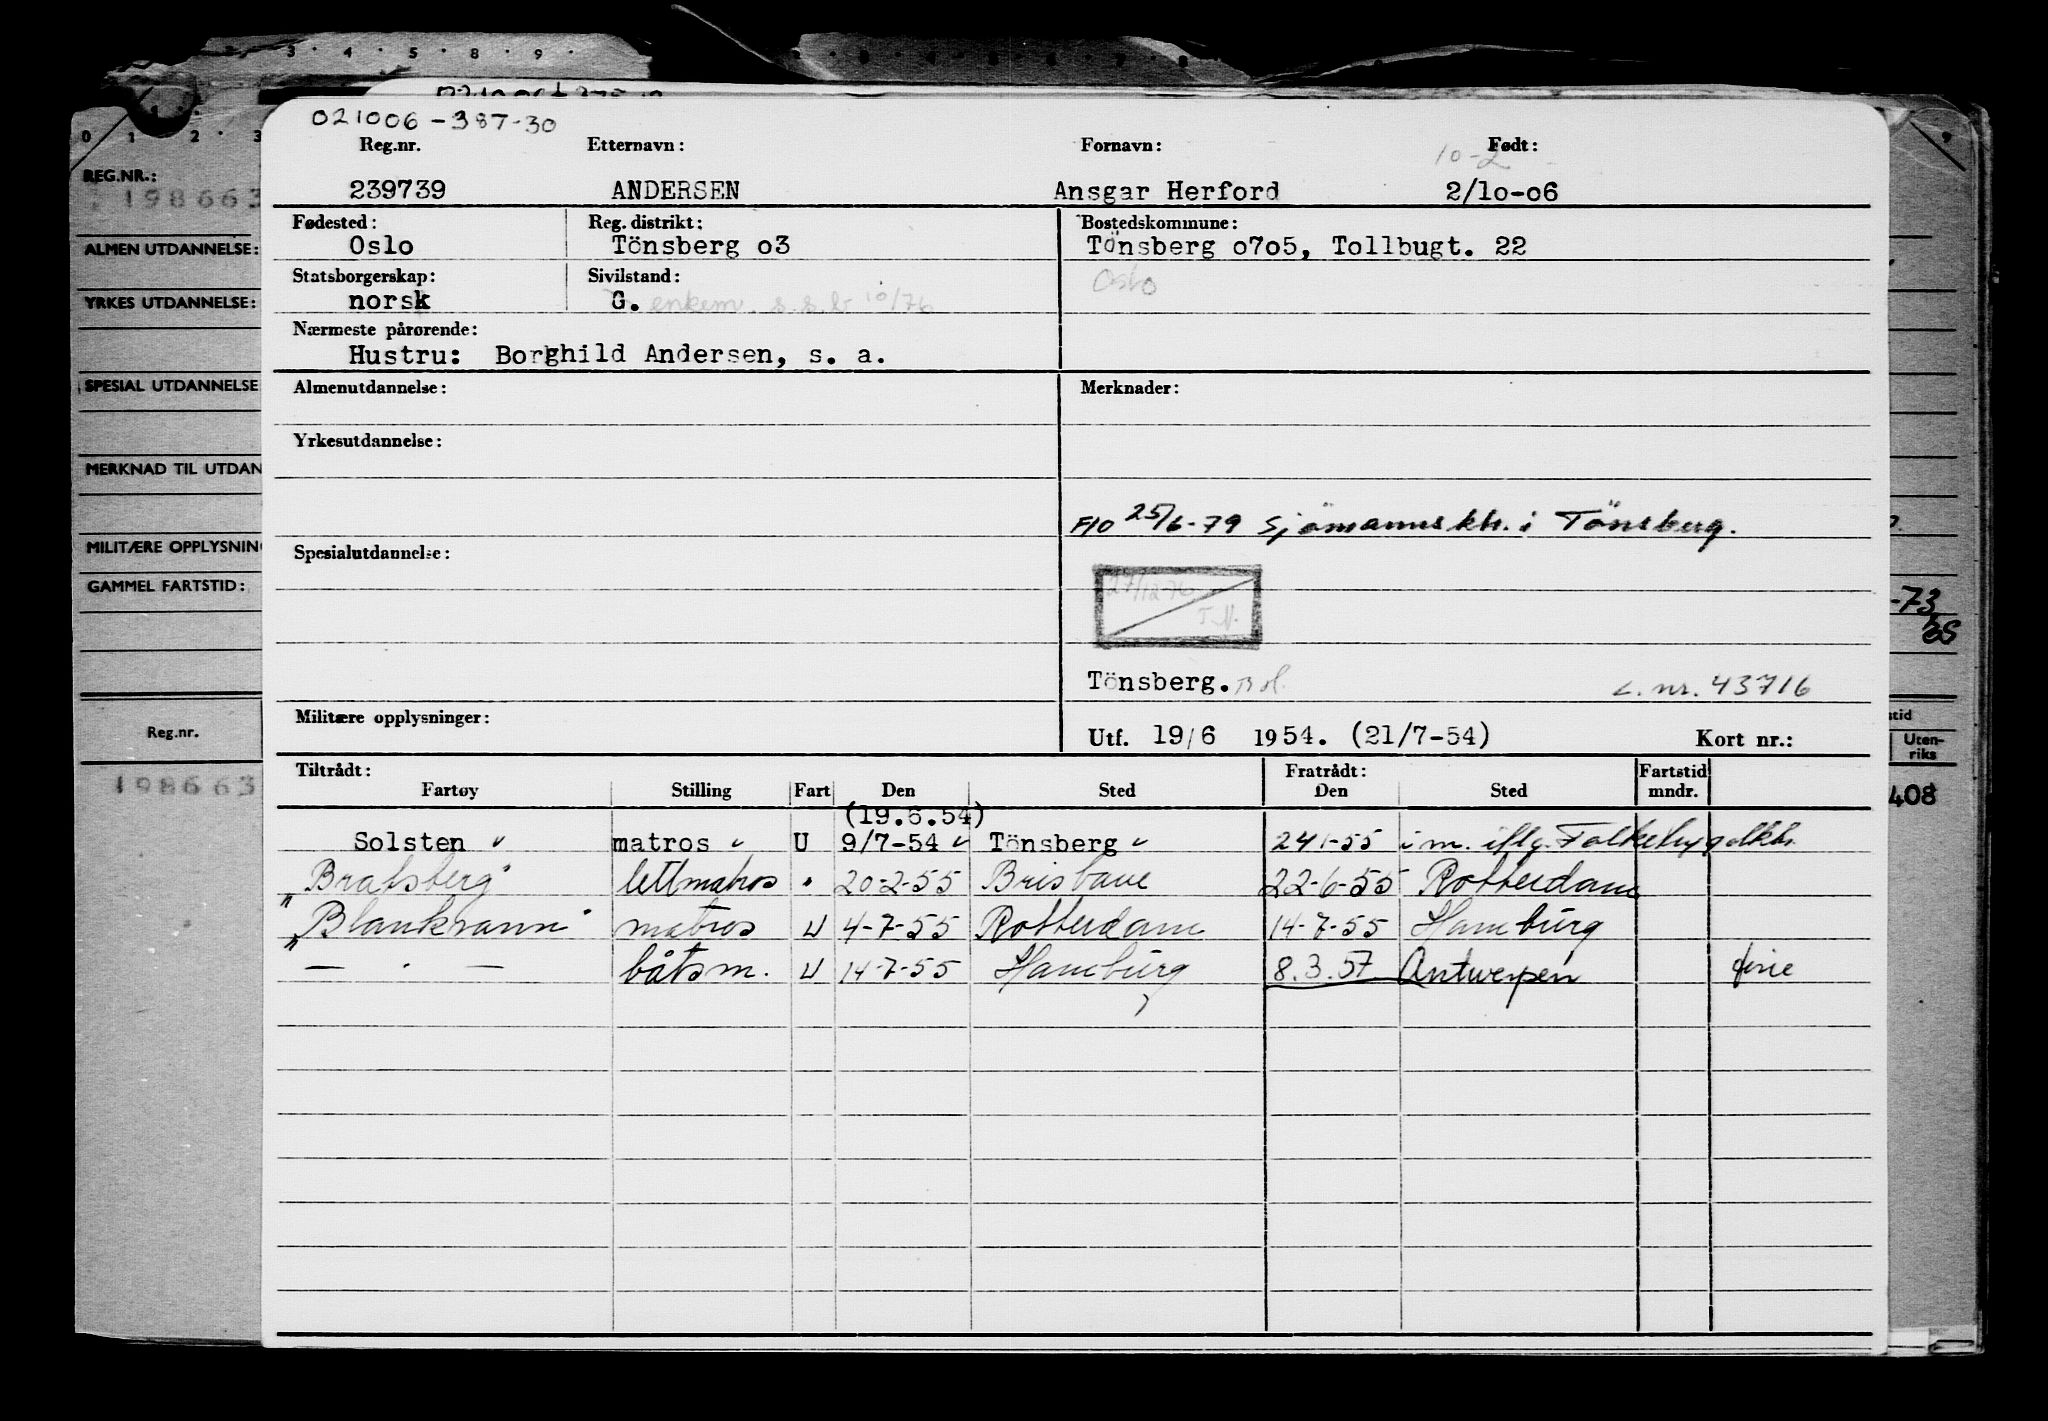 021006-387-30
Reg.nr. Etternavn: Fornavn: Født:
10-2
239739 ANDERSEN Ansgar Herford 2/10-06
Fødested: Reg. distrikt: Bostedskommune:
Oslo Tönsberg o3 Tönsberg o7o5, Tollbugt. 22
Statsborgerskap: Sivilstand: Oslo
norsk G. enkem. s.s.b 10/76
Nærmeste pårørende:
Hustru: Borghild Andersen, s. a.
Almenutdannelse: Merknader:
Yrkesutdannelse:
FIO 25/6-79 Sjömannskh. i Tönsberg.
Spesialutdannelse:
27/12-76
Tönsberg. L. nr. 43716
Militære opplysninger:
Utf. 19/6 1954. (21/7-54) Kort nr.:
Tiltrådt: Fratrådt: Fartstid
Fartøy Stilling Fart Den Sted Den Sted mndr.
(19.6.54)
Solsten matros U 9/7-54 Tönsberg 24 1-55 i m. iflg.
"Bratsberg" lettmatros " 20-2-55 Brisbane 22-6-55 Rotterdam
"Blankvann" matros U 4-7-55 Rotterdam 14-7-55 Hamburg
— " — båtsm. U 14-7-55 Hamburg 8.3.57 Antwerpen ferie
REG.NR.:
198663
ALMEN UTDANNELSE:
YRKES UTDANNELSE:
SPESIAL UTDANNELSE
MERKNAD TIL UTDAN
MILITÆRE OPPLYSNIN
GAMMEL FARTSTID:
Reg.nr.
198663
-73
tid
Uten-
riks
408